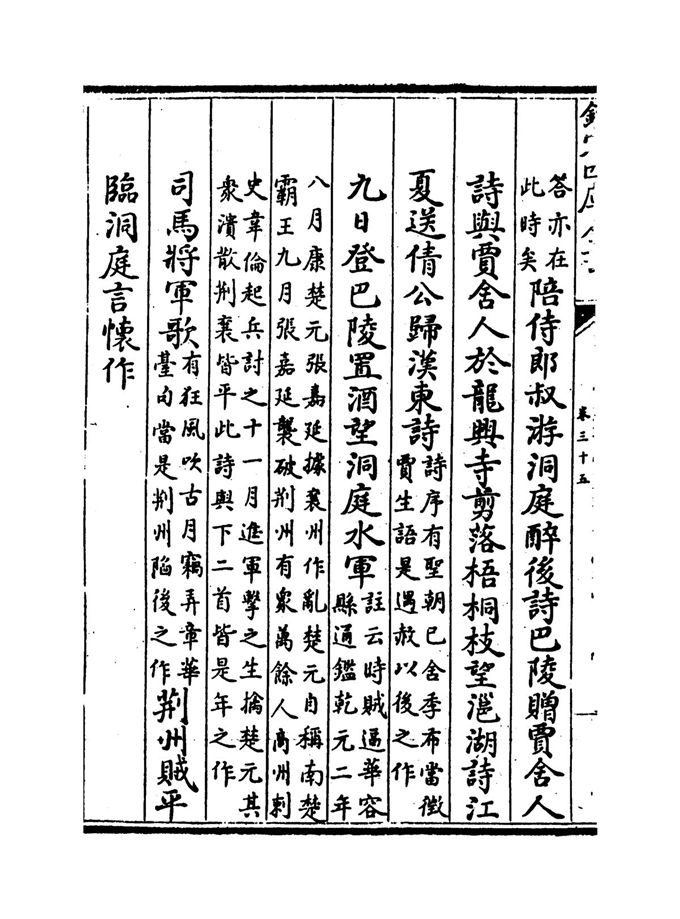 欽定四庫全書
卷三十五
答亦在此時矣陪侍郎叔游洞庭醉後詩巴陵贈賈舍人
詩與賈舍人於龍興寺剪落梧桐枝望灉湖詩江
夏送倩公歸漢東詩詩序有聖朝已舍季布當徵賈生語是遇赦以後之作
九日登巴陵置酒望洞庭水軍註云時賊逼華容縣通鑑乾元二年
八月康楚元張嘉延據襄州作亂楚元自稱南楚
霸王九月張嘉延襲破荆州有衆萬餘人商州刺
史韋倫起兵討之十一月進軍擊之生擒楚元其
衆潰散荆襄皆平此詩與下二首皆是年之作
司馬將軍歌有狂風吹古月竊弄章華臺句當是荆州陷後之作荆州賊平
臨洞庭言懷作